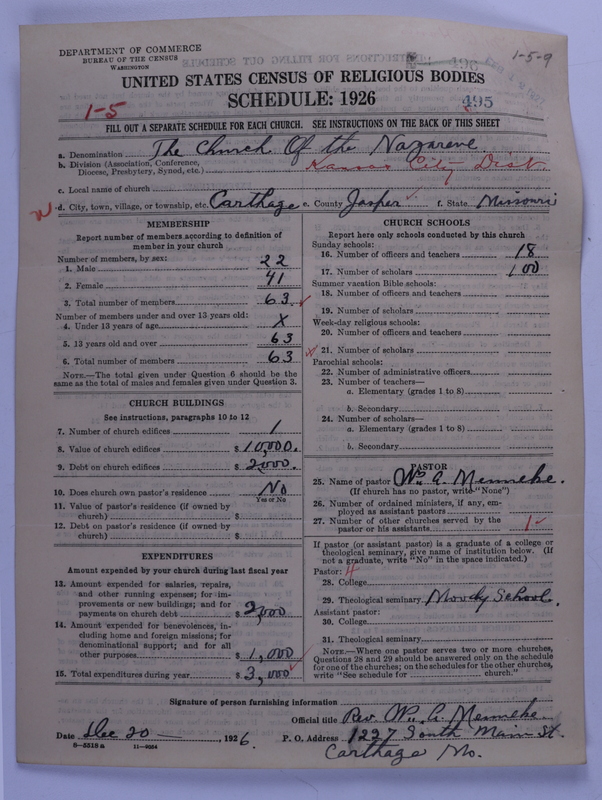 DEPARTMENT OF COMMERCE
BUREAU OF THE CENSUS
WASHINGTON
496
1-5-9
UNITED STATES CENSUS OF RELIGIOUS BODIES
SCHEDULE: 1926
1-5
495
FILL OUT A SEPARATE SCHEDULE FOR EACH CHURCH. SEE INSTRUCTIONS ON THE BACK OF THIS SHEET
a. Denomination The Church Of the Nazarene
b. Division (Association, Conference, Diocese, Presbytery, Synod, etc.) Kansas City Dist.
c. Local name of church
d. City, town, village, or township, etc. Carthage e. County Jasper f. State Missouri
MEMBERSHIP
Report number of members according to definition of
member in your church
Number of members, by sex:
1. Male 22
2. Female 41
3. Total number of members 63
Number of members under and over 13 years old:
4. Under 13 years of age X
5. 13 years old and over 63
6. Total number of members 63
NOTE.—The total given under Question 6 should be the
same as the total of males and females given under Question 3.
CHURCH BUILDINGS
See instructions, paragraphs 10 to 12
7. Number of church edifices 1
8. Value of church edifices $ 10,000.
9. Debt on church edifices $ 2000.
10. Does church own pastor's residence No
Yes or No
11. Value of pastor's residence (if owned by
church) $
12. Debt on pastor's residence (if owned by
church) $
EXPENDITURES
Amount expended by your church during last fiscal year
13. Amount expended for salaries, repairs,
and other running expenses; for im-
provements or new buildings; and for
payments on church debt $ 2,000
14. Amount expended for benevolences, in-
cluding home and foreign missions; for
denominational support; and for all
other purposes $ 1,000
15. Total expenditures during year $ 3,000
CHURCH SCHOOLS
Report here only schools conducted by this church
Sunday schools:
16. Number of officers and teachers 18
17. Number of scholars 100
Summer vacation Bible schools:
18. Number of officers and teachers
19. Number of scholars
Week-day religious schools:
20. Number of officers and teachers
21. Number of scholars
Parochial schools:
22. Number of administrative officers
23. Number of teachers—
a. Elementary (grades 1 to 8)
b. Secondary
24. Number of scholars—
a. Elementary (grades 1 to 8)
b. Secondary
PASTOR
25. Name of pastor Wm. A. Menneke.
(If church has no pastor, write "None")
26. Number of ordained ministers, if any, em-
ployed as assistant pastors
27. Number of other churches served by the
pastor or his assistants 1
If pastor (or assistant pastor) is a graduate of a college or
theological seminary, give name of institution below. (If
not a graduate, write "No" in the space indicated.)
Pastor: 4
28. College
29. Theological seminary Moody School.
Assistant pastor:
30. College
31. Theological seminary
NOTE.—Where one pastor serves two or more churches,
Questions 28 and 29 should be answered only on the schedule
for one of the churches; on the schedules for the other churches,
write "See schedule for church."
Signature of person furnishing information
Official title Rev. Wm. A. Menneke
Date Dec 20 1926. P. O. Address 1227 South Main St.
8-5318 a 11-9054
Carthage Mo.